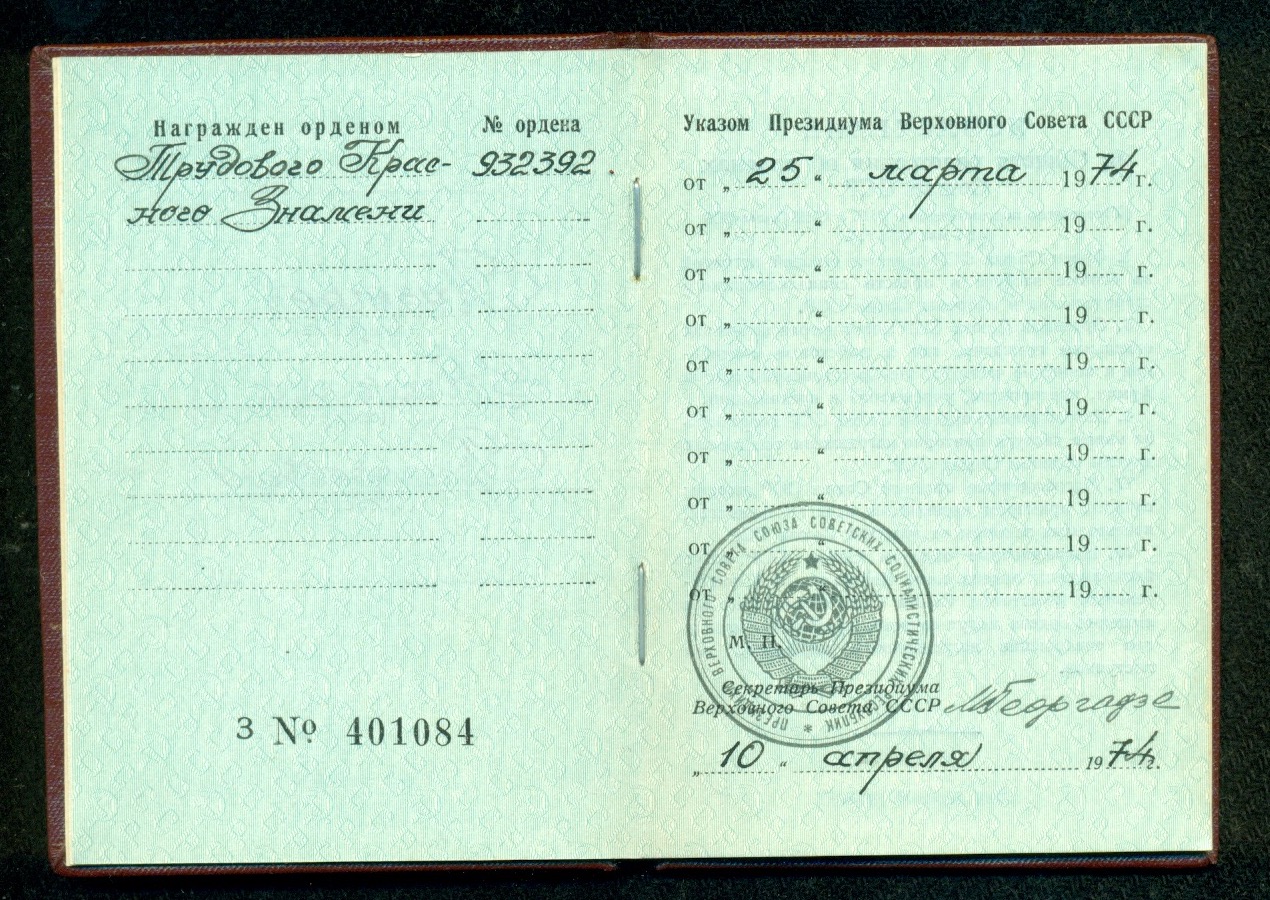 Награжден орденом
№ ордена
Трудового Крас-
932392.
ного Знамени
З № 401084
Указом Президиума Верховного Совета СССР
от „ 25 “ марта 1974 г.
от „ “ 19 г.
от „ “ 19 г.
от „ “ 19 г.
от „ “ 19 г.
от „ “ 19 г.
от „ “ 19 г.
от „ “ 19 г.
от „ “ 19 г.
от „ “ 19 г.
ПРЕЗИДИУМ ВЕРХОВНОГО СОВЕТА СОЮЗА СОВЕТСКИХ СОЦИАЛИСТИЧЕСКИХ РЕСПУБЛИК *
М. П.
Секретарь Президиума
Верховного Совета СССР МГеоргадзе
„ 10 “ апреля 1974 г.